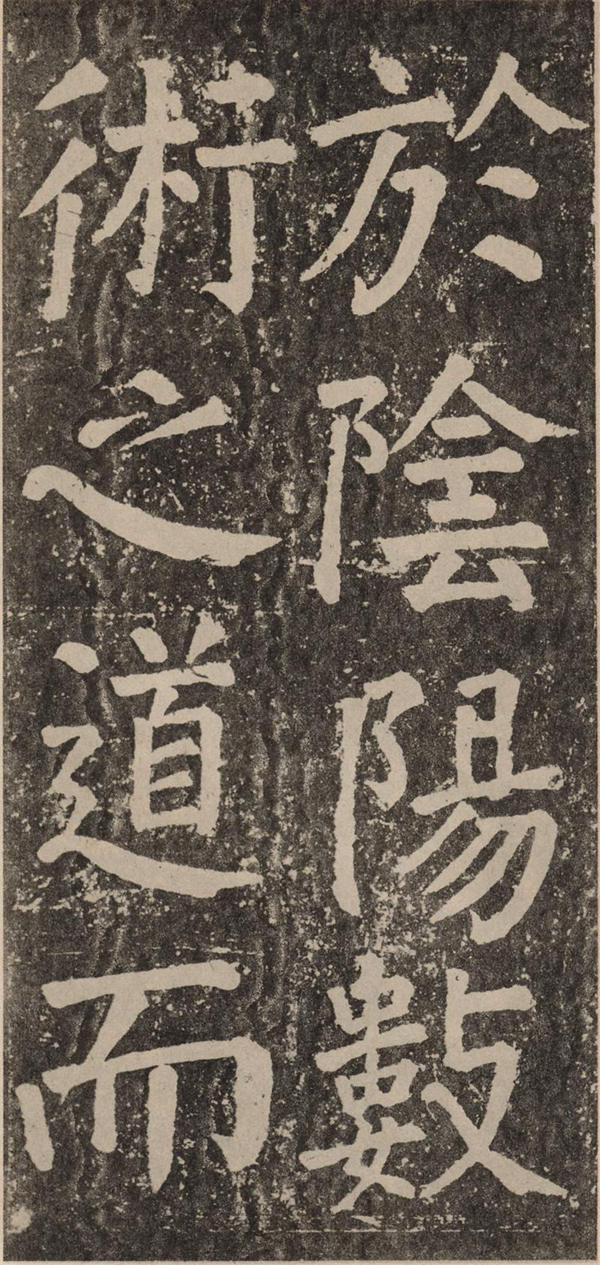 於陰陽數
術之道而